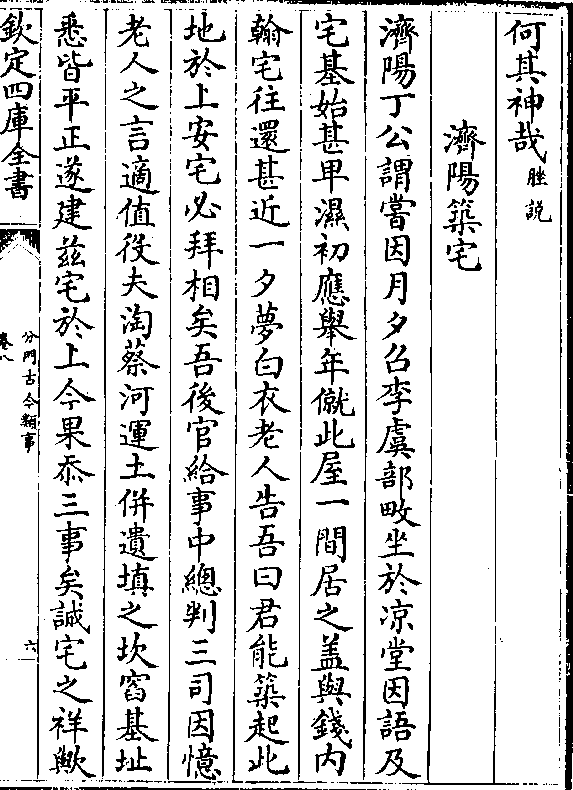 何其神哉脞説
濟陽築宅
濟陽丁公謂嘗因月夕召李虞部畋坐於凉堂因語及
宅基始甚卑濕初應舉年僦此屋一間居之盖與錢内
翰宅往還甚近一夕夢白衣老人告吾曰君能築起此
地於上安宅必拜相矣吾後官給事中總判三司因憶
老人之言適值役夫淘蔡河運土併遺填之坎窞基址
悉皆平正遂建兹宅於上今果忝三事矣誠宅之祥歟
欽定四庫全書
分門古今類事
卷八
六